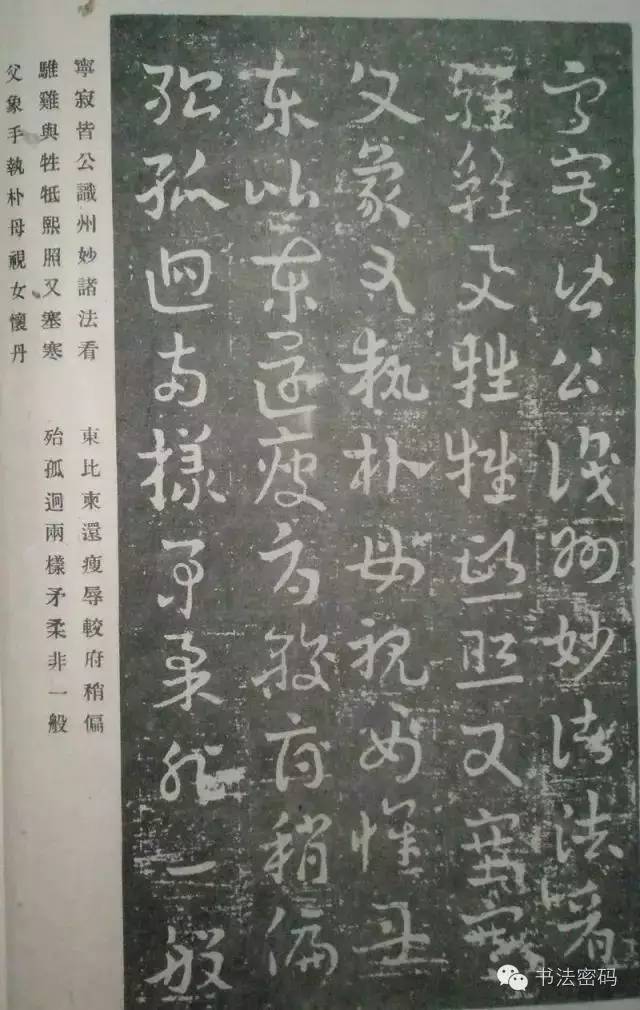 寧寂皆公識州妙諸法看
騅雞與牲牴熙照又塞寒
父象手執朴母視女懷丹
東比柬還瘦辱較府稍偏
殆孤迴兩樣矛柔非一般
寧寂皆公識州妙諸法看
騅雞與牲牴熙照又塞寒
父象手執朴母視女懷丹
東比柬還瘦辱較府稍偏
殆孤迴兩樣矛柔非一般
书法密码